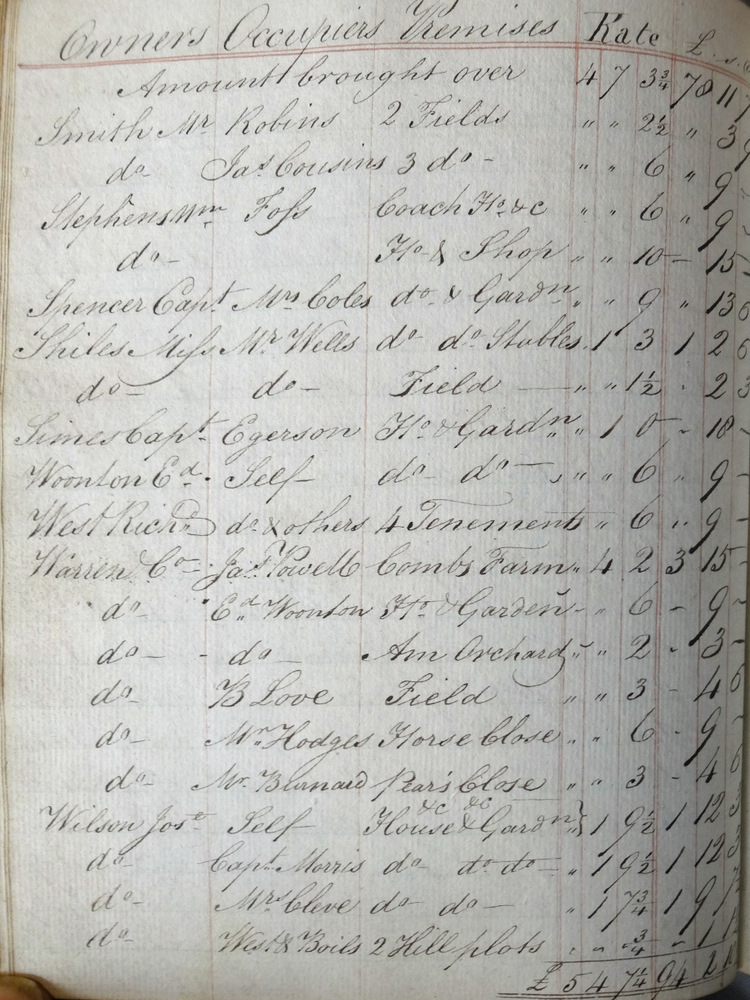 Owners Occupiers Premises Rate £ s
Amount brought over 4 7 3¾ 78 11
Smith Mr Robins 2 Fields " " 2½ " 3
do Jas Cousins 3 do - " " 6 " 9 -
Stephens Wm Foss Coach Ho &c " " 6 " 9 -
do - Ho & Shop " " 10 - 15 -
Spencer Capt Mrs Coles do & Gardn " " 9 " 13 6
Shiles Miss Mr Wells do do Stables " 1 3 1 2 6
do - do - Field " " 1½ - 2 3
Simes Capt Egerson Ho & Gardn " 1 0 - 18 -
Woonton Ed Self do do - " " 6 " 9 -
West Richd do & others 4 Tenements " 6 " 9 -
Warren & Co Jas Powell Combs Farm " 4 2 3 15 -
do Ed Woonton Ho & Garden - " 6 - 9 -
do - - do - Am Orchard " " 2 - 3 -
do B Love Field " " 3 - 4 6
do Mr Hodges Horse Close " " 6 - 9 -
do Mr Burnard Pear's Close " " 3 - 4 6
&c &c
Wilson Jose Self House & Gardn } " 1 9½ 1 12 3
do Capt Morris do do do - " 1 9½ 1 12 3
do Mrs Cleve do do - " 1 7¾ 1 9
do West & Boils 2 Hill plots " - ¾ - 1
£ 5 4 7¼ 94 2